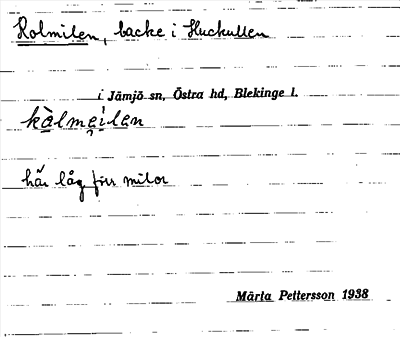 Kolmilen, backe i Huckullen
i Jämjö sn, Östra hd, Blekinge l.
kòlmeilen
här låg förr milor
Märta Pettersson 1938